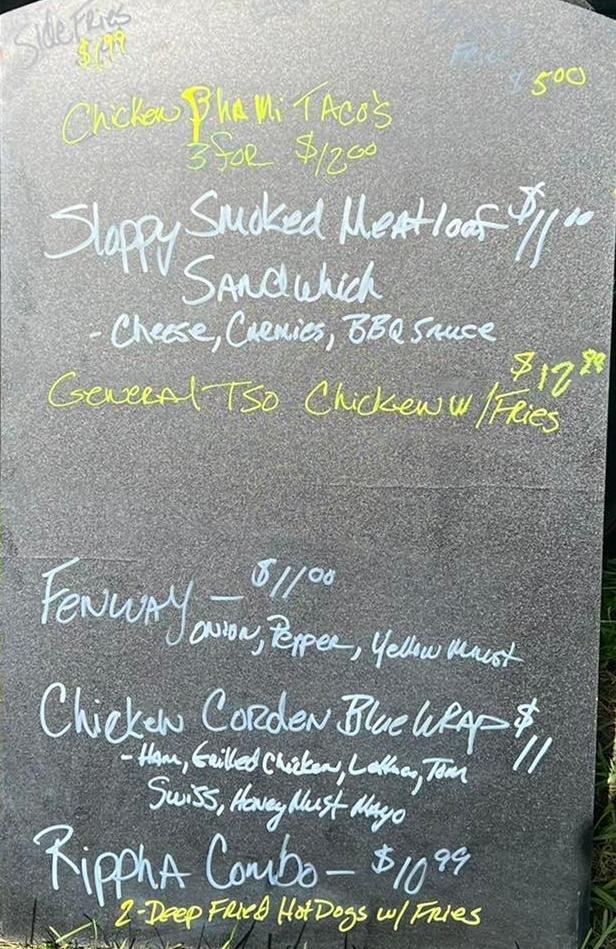 Side Fries
$1.99
Fries
$5.00
Chicken Bha Mi Taco's
3 for $12.00
Sloppy Smoked Meatloaf $11.00
Sandwhich
- Cheese, Carmies, BBQ Sauce
$12.99
General Tso Chicken w/Fries
Fenway - $11.00
Onion, Pepper, Yellow Must
Chicken Corden Blue Wrap $11
- Ham, Grilled Chicken, Lettuc, Tom
Swiss, Honey Must Mayo
Rippha Combo - $10.99
2-Deep Fried Hot Dogs w/ Fries